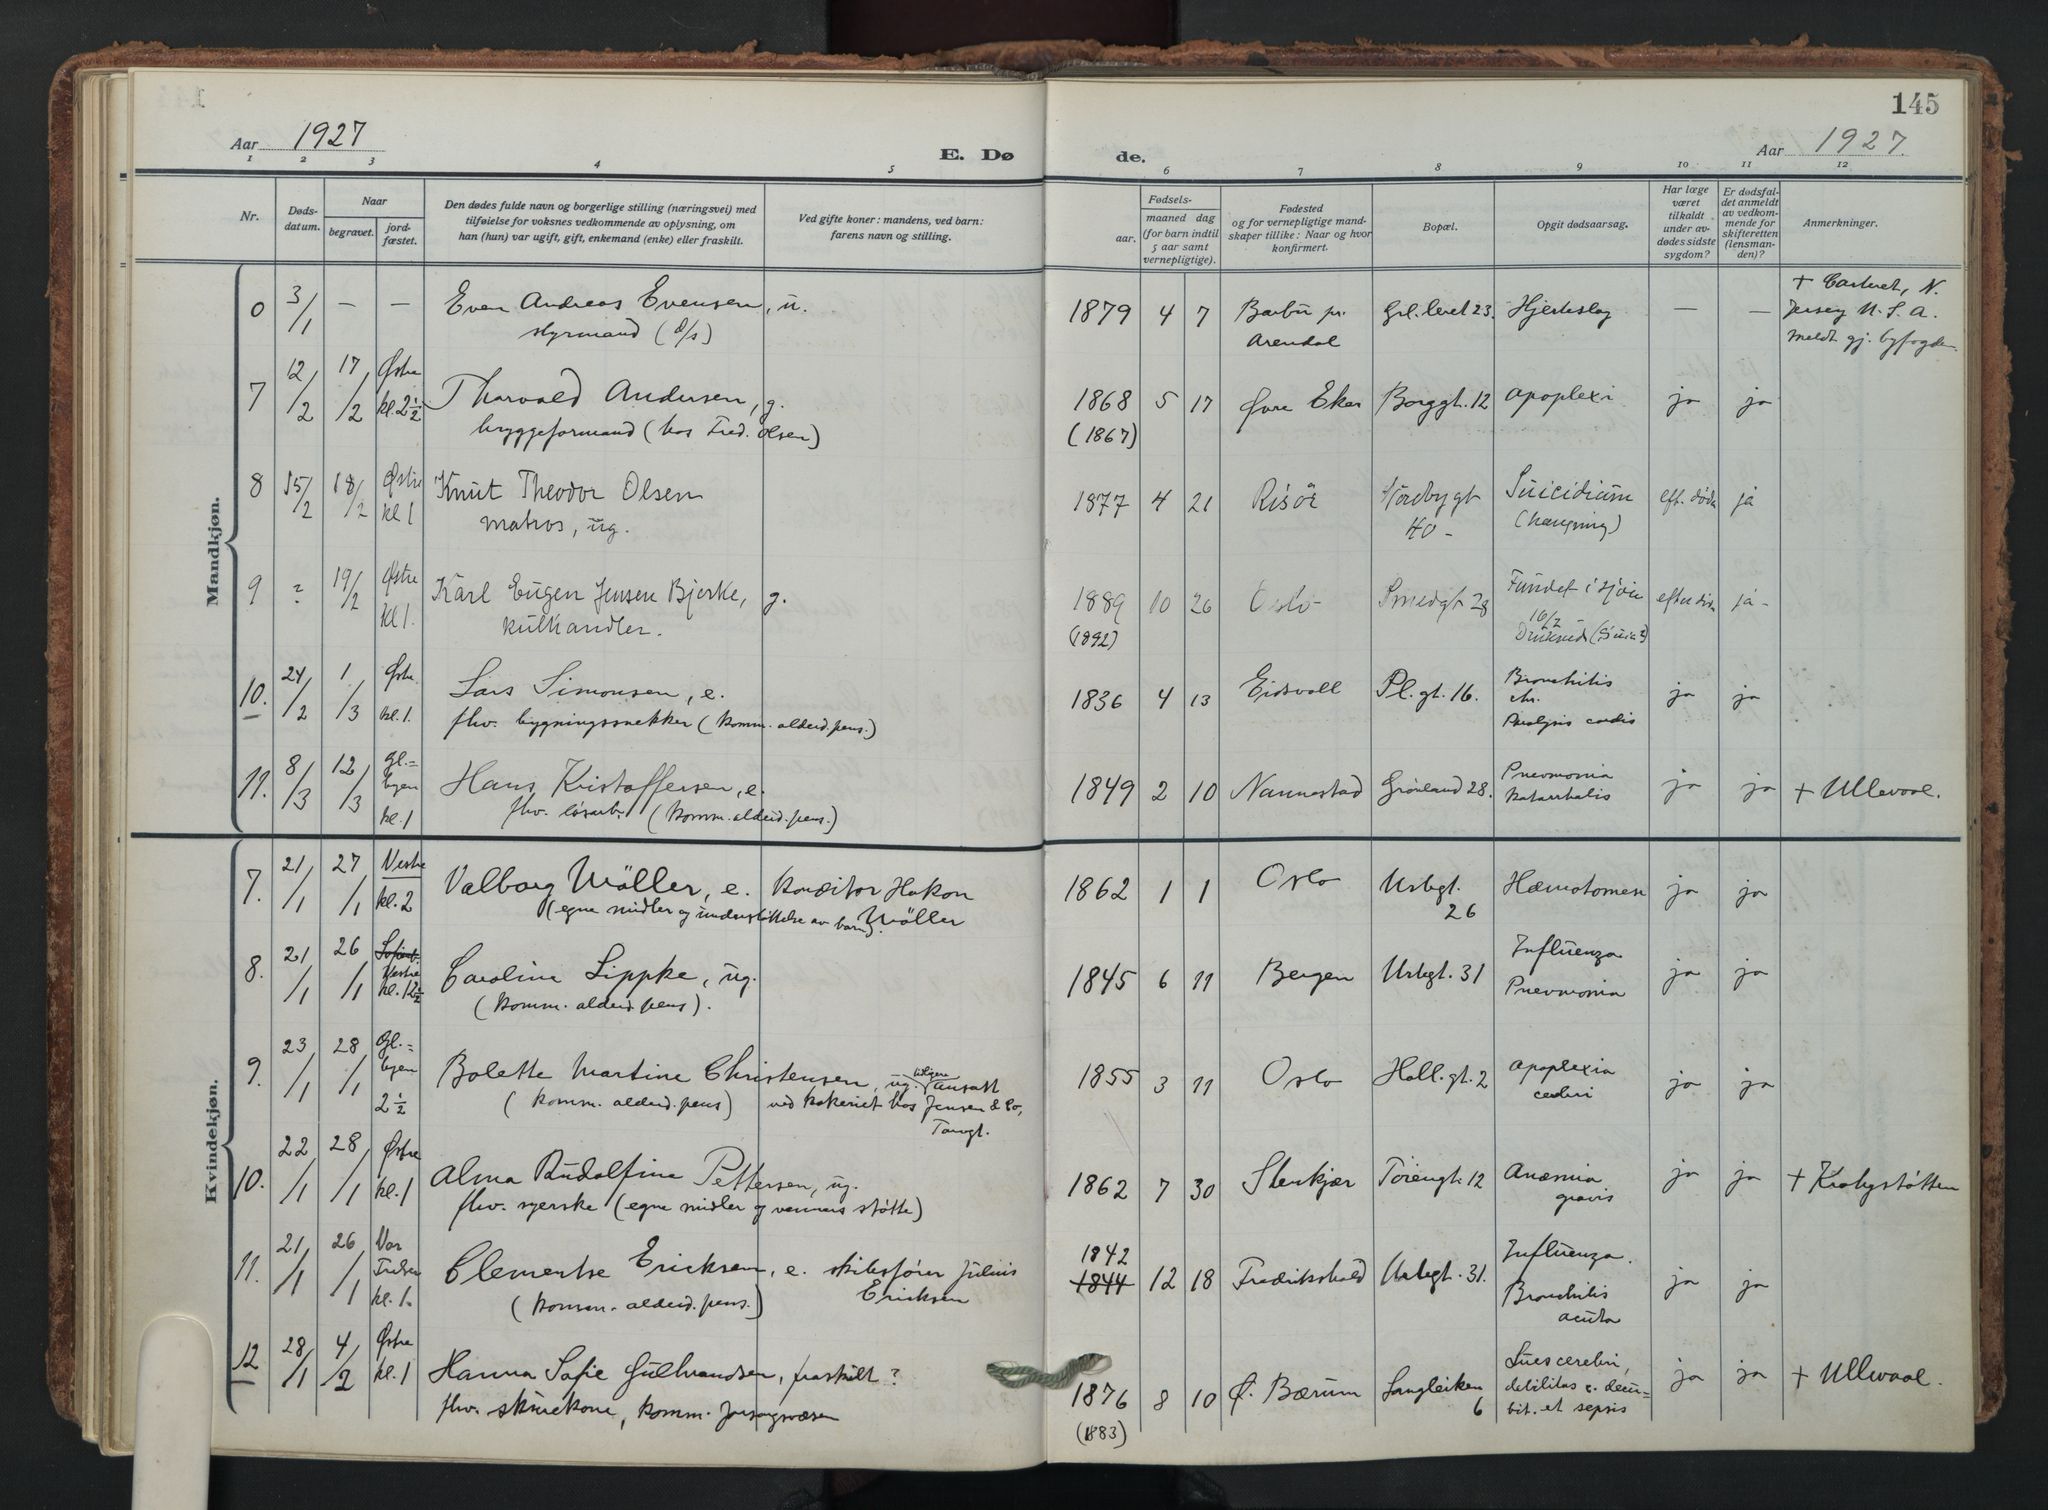 145
Aar 1927
E. Dø
de.
Aar 1927.
1 2 3 4 5 6 7 8 9 10 11 12
Nr.
Døds-
datum.
Naar
begravet.
jord-
fæstet.
Den dødes fulde navn og borgerlige stilling (næringsvei) med
tilføielse for voksnes vedkommende av oplysning, om
han (hun) var ugift, gift, enkemand (enke) eller fraskilt.
Ved gifte koner: mandens, ved barn:
farens navn og stilling.
Fødsels-
aar.
maaned dag
(for barn indtil
5 aar samt
vernepligtige).
Fødested
og for vernepligtige mand-
skaper tillike: Naar og hvor
konfirmert.
Bopæl.
Opgit dødsaarsag.
Har læge
været
tilkaldt
under av-
dødes sidste
sygdom?
Er dødsfal-
det anmeldt
av vedkom-
mende for
skifteretten
(lensman-
den)?
Anmerkninger.
Mandkjøn.
0 3/1 — — Even Andreas Evensen, u. 1879 4 7 Barbu pr. Grl. leret 23. Hjerteslag — — + Carteret, N.
styrmand (d/s) Arendal Jersey U. S. A.
meldt gj. byfogden
7 12/2 17/2 Østre kl. 2½ Thorvald Andersen, g. 1868 5 17 Øvre Eker Borggt. 12 Apoplexi ja ja
bryggeformand (hos Fred. Olsen) (1867)
8 15/2 18/2 Østre kl 1 Knut Theodor Olsen 1877 4 21 Risør Suicidium eft. døde ja
matros, ug. 40 - (hængning)
9 ? 19/2 Østre kl 1. Karl Eugen Jensen Bjerke, g. 1889 10 26 Oslo Smedgt 28 Fundet i sjøen ja -
kulhandler. (1892) 10/2
10. 24/2 1/3 Østre kl. 1. Lars Simonsen, e. 1836 4 13 Eidsvoll Pl. gt. 16. Bronchitis ja ja
fhv. bygningssnekker (komm. alderd. pens.) chr.
Paralysis cordis
11. 8/3 12/3 Gl.= byen kl. 1 Hans Kristoffersen, e. 1849 2 10 Nannestad Grønland 28. Pneumonia ja ja + Ullevaal.
fhv. løsarb. (komm. alderd. pens.) katarrhalis
Kvindekjøn.
7. 21/1 27/1 Vestre kl. 2 Valborg Möller, e. konditor Hakon 1862 1 1 Oslo Urbgt. Hæmatomesn ja ja
(egne midler og understöttelse av barn). Möller 26
8. 21/1 26/1 Vestre kl. 12½ Caroline Lippke, ug. 1845 6 11 Bergen Urbgt. 31 Influenza ja ja
(komm. alderd. pens). Pneumonia
9. 23/1 28/1 Gl.= byen 2½ Bolette Martine Christensen, ug. tidligere ansatt 1855 3 11 Oslo Holl. gt. 2 Apoplexia ja ja
(komm. alderd. pens) ved kokeriet hos Jensen & Co, cerebri
Torvgt.
10. 22/1 28/1 Østre kl. 1 Alma Rudolfine Pettersen, ug. 1862 7 30 Stenkjær Torengt. 12 Anæmia ja ja + Krohgstøtten
fhv. syerske (egne midler og venners støtte) gravis
11. 21/1 26/1 Vor Frelser kl. 1. Clementse Ericksen, e. skibsfører Julius 1842 1844 12 18 Fredrikshald Urbgt. 31. Influenza. ja ja
(komm. alderd. pens.) Ericksen Bronchitis
acuta
12 28/1 4/2 Østre kl. 1 Hanna Sofie Gulbrandsen, fraskilt? 1876 8 10 Ø. Bærum Langleiken Lues cerebri, ja ja + Ullevaal.
fhv. skurekone, komm. forsorgsvæsen (1883) 6 debilitas c. decu-
bit. et sepsis